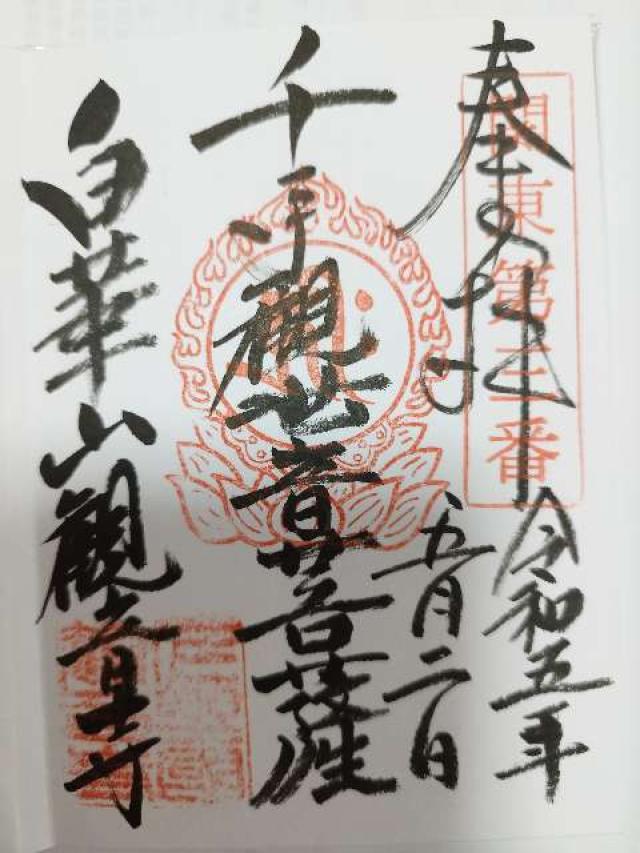 奉拝
関東第三番
令和五年
五月二日
千手観世音菩薩
白華山観音寺